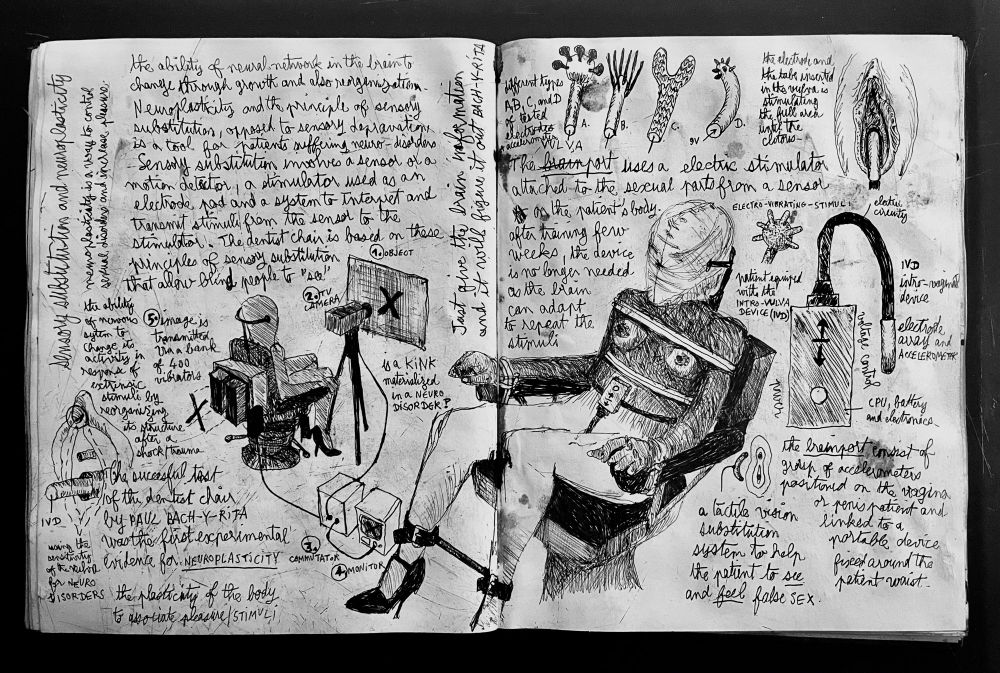 Sensory substitution and neuroplasticity
neuroplasticity is a way to control
sexual disorders and increase pleasure.
the ability of neural network in the brain to
change through growth and also reorganization.
Neuroplasticity and the principle of sensory
substitution, opposed to sensory depravation
is a tool for patients suffering neuro-disorders
Sensory substitution involves a sensor or a
motion detector, a stimulator used as an
electrode pad and a system to interpet and
transmit stimuli from the sensor to the
stimulator. The dentist chair is based on these
principles of sensory substitution
that allow blind people to "see"
1. OBJECT
2. TV
CAMERA
X
the ability
of nervous
sytem to
change its
activity in
response of
extrinsic
stimuli by
reorganising
its structure
after a
shock/trauma
5. image is
transmitted
via a bank
of 400
vibrators
X
is a KINK
materialized
in a NEURO
DISORDER?
IVD
The succesful test
of the dentist chair
by PAUL BACH-Y-RITA
was the first experimental
evidence for NEUROPLASTICITY
the plasticity of the body
to associate pleasure/STIMULI
for NEURO
DISORDERS
3.
COMMUTATOR
4. MONITOR
Just give the brain information
and it will figure it out BACH-Y-RITA
different types
A, B, C, and D
of tested
electrodes
accelerometer
VULVA
A.
B.
C.
9V
D.
the electrode and
the tube inserted
in the vulva is
stimulating
the full area
until the
clitoris
The brainport uses a electric stimulator
attached to the sexual parts from a sensor
on the patient's body
after training few
weeks, the device
is no longer needed
as the brain
can adapt
to repeat the
stimuli
ELECTRO-VIBRATING-STIMULI
electric
circuitry
patient equiped
with the
INTRO-VULVA
DEVICE (IVD)
IVD
intro-vaginal
device
voltage control
electrode
array and
ACCELEROMETER
CPU, battery
and electronics
the brainport consist of
group of accelerometers
positioned on the vagina
or penis patient and
linked to a
portable device
fixed around the
patient waist.
a tactile vision
substitution
system to help
the patient to see
and feel false SEX.